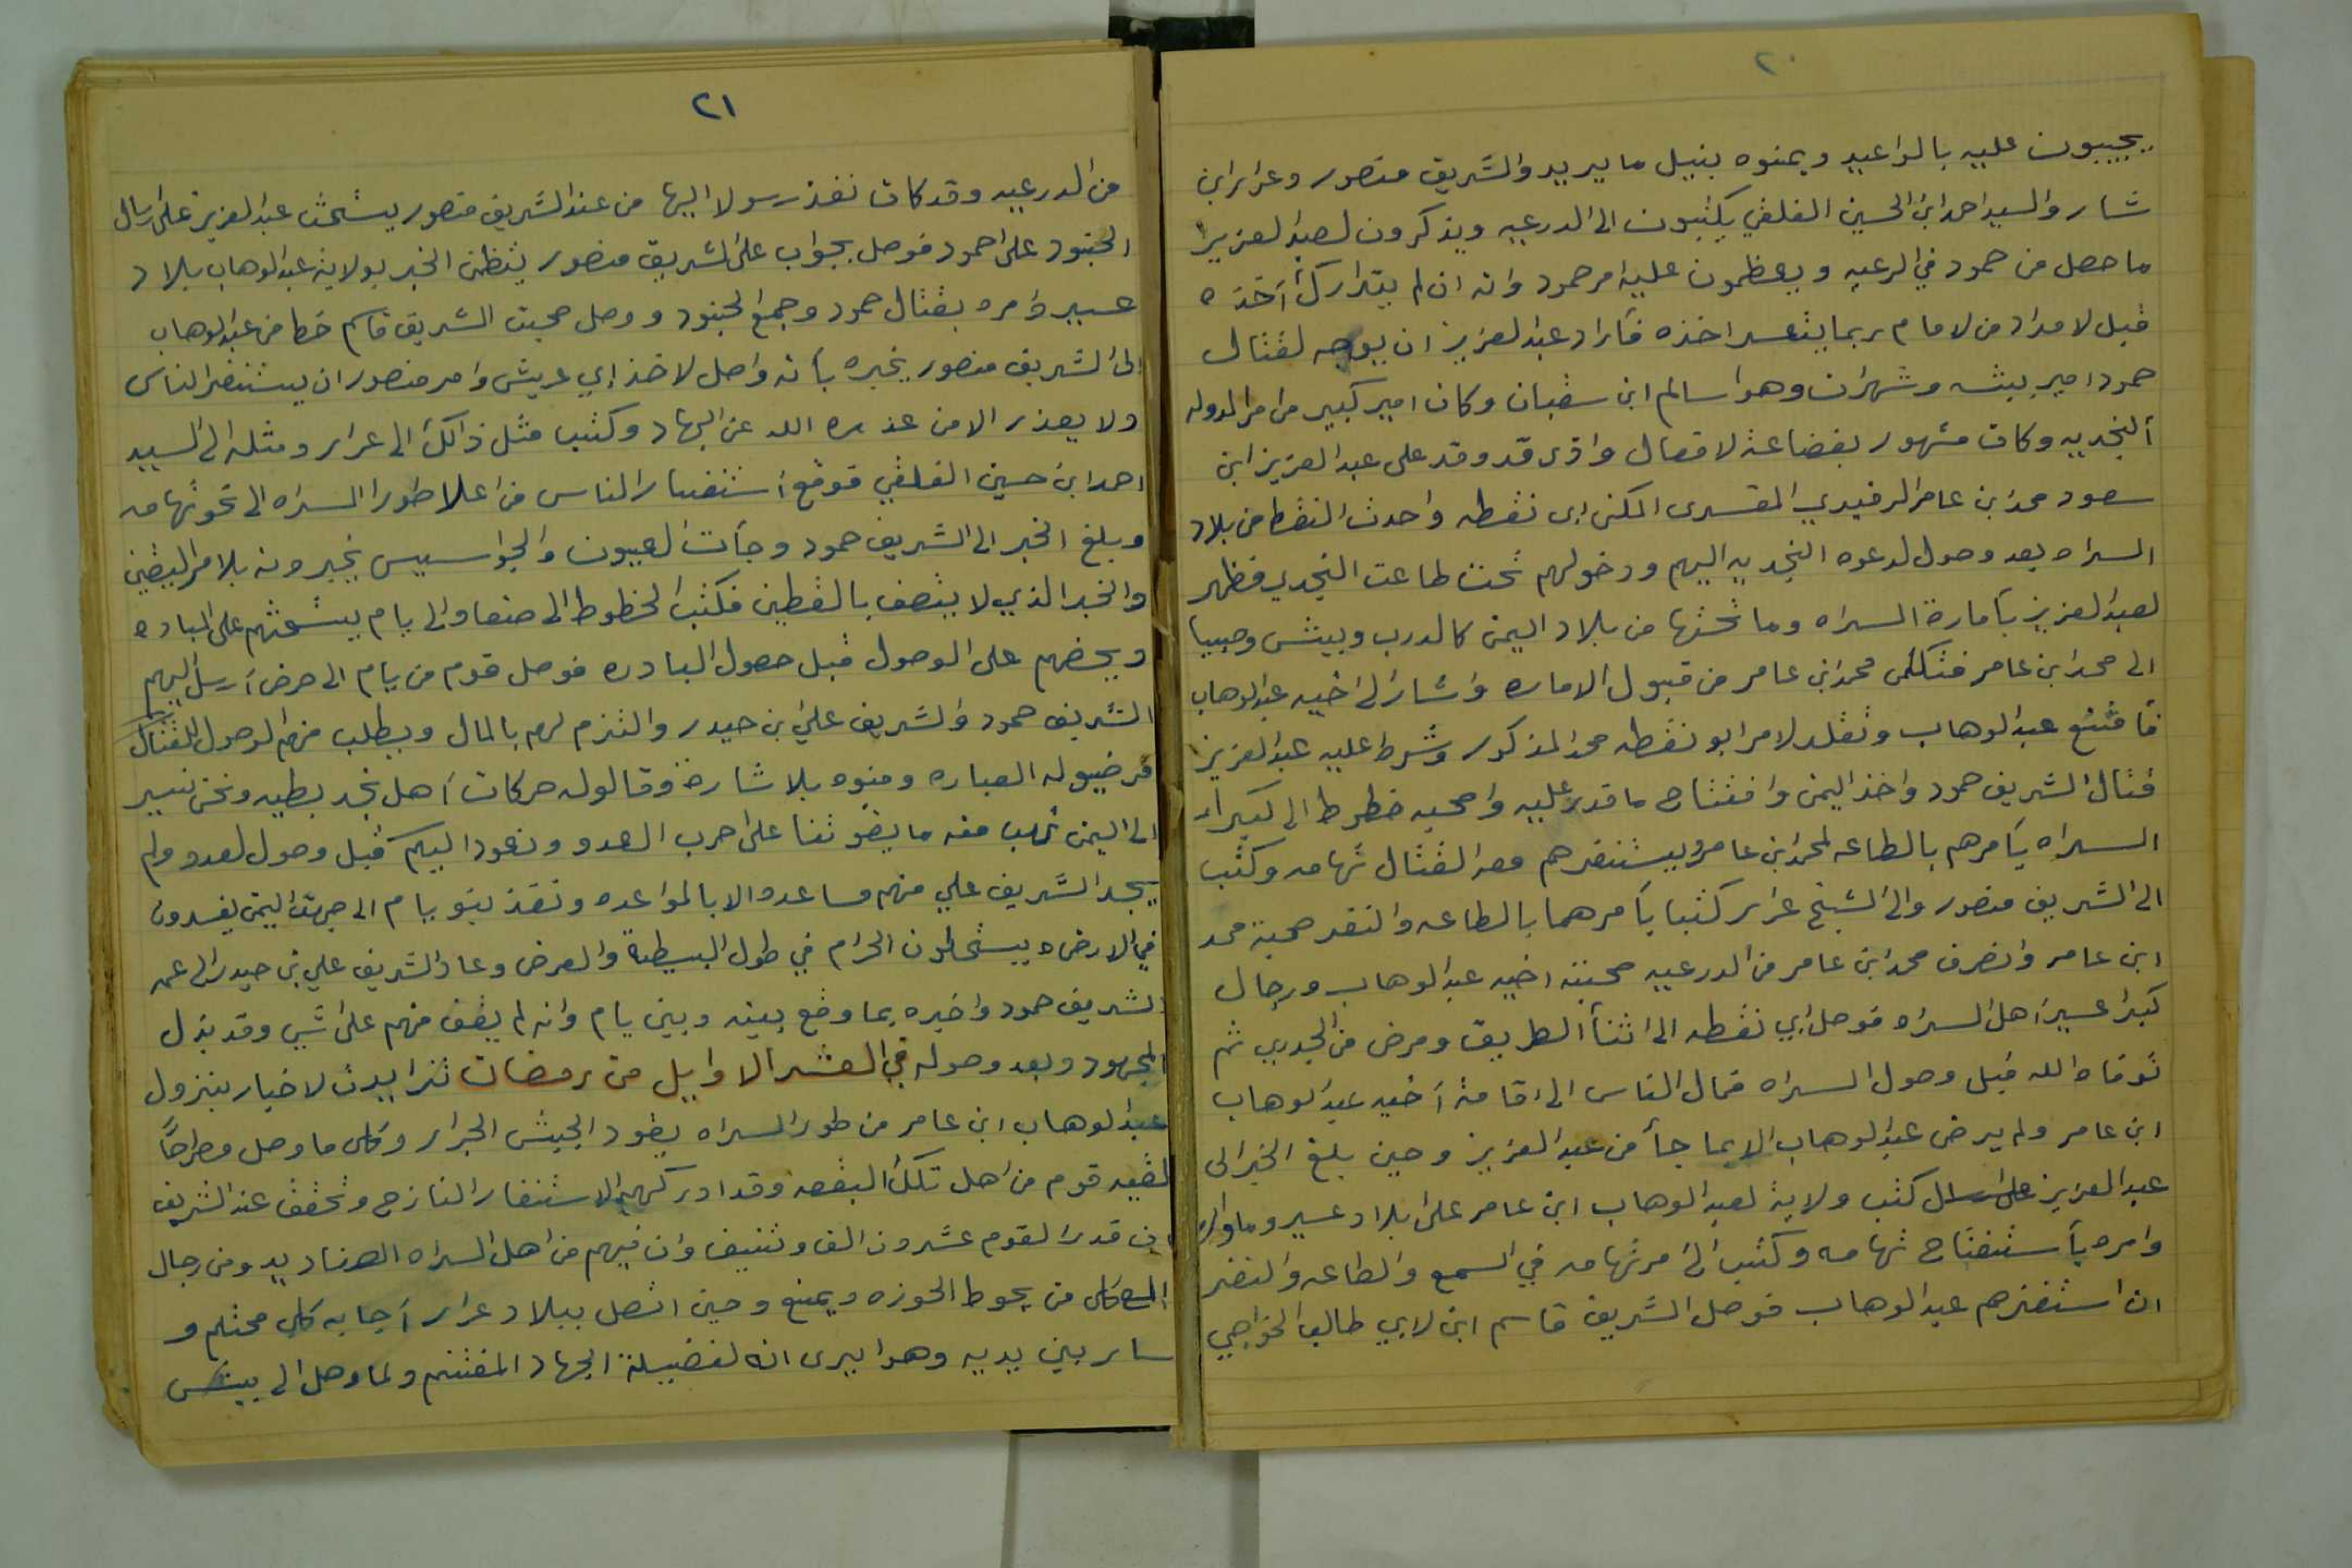 ٢٠
يجيبون عليه بالواعيد ويمنوه بنيل ما يريد والشريف منصور وعرار ابن
شار والسيد احمد ابن الحسين الفلقي يكتبون الى الدرعيه ويذكرون لعبد العزيز
ما حصل من حمود في الرعيه ويعظمون عليه امر حمود وانه ان لم يتدارك أخذه
قبل لامداد من لامام ربما يتعسر اخذه فأراد عبد العزيز ان يوجه لقتال
حمود امير بيشه وشهران وهوا سالم ابن شقبان وكان امير كبير من امرا الدوله
ألنجديه وكان مشهور بفضاعة لافعال واذى قد وقد على عبد العزيز ابن
سعود محمد ابن عامر الرفيدي المكنى ابى نقطه واحدث النقط من بلاد
السراه بعد وصول لدعوه النجديه اليهم ودخولهم تحت طاعت النجدي فظهر
لعبد العزيز بأمارة السراه وما تحتها من بلاد اليمن كالدرب وبيش وصبيا
الى محمد ابن عامر فتلكى محمد ابن عامر من قبول الاماره واشار الى اخيه عبد الوهاب
فأمتنع عبد الوهاب وتقلد لامر ابو نقطه محمد المذكور وشرط عليه عبد العزيز
قتال الشريف حمود واخذ اليمن وافتتاح ما قدر عليه واصحبه خطوط الى كبراء
السراه يأمرهم بالطاعه لمحمد ابن عامر ويستنفرهم معه القتال تهامه وكتب
الى الشريف منصور والى الشيخ عرار كتبا يأمرهما بالطاعه والنفر صحبة محمد
ابن عامر وانصرف محمد ابن عامر من الدرعيه صحبته اخيه عبد الوهاب ورجال
كبرا عسير أهل السراه فوصل ابي نقطه الى اثنأ الطريق ومرض من الجدري ثم
توفاه الله قبل وصول السراه فمال الناس الى اقامة أخيه عبد الوهاب
ابن عامر ولم يرض عبد الوهاب الا بما جأ من عبد العزيز وحين بلغ الخبر الى
عبد العزيز كتب ولاية لعبد الوهاب ابن عامر على ابلاد عسير وما والاه
وامره بأستفتاح تهامه وكتب الى امر تهامه في السمع والطاعه والنفر
ان استنفرهم عبد الوهاب فوصل الشريف قاسم ابن لابي طالب الخواجي
٢١
من الدرعيه وقد كان نفذ رسولا اليها من عند الشريف منصور يستحث عبد العزيز على ارسال
الجنود على احمود فوصل بجواب على الشريف منصور يتظمن الخبر بولاية عبد الوهاب بلاد
عسير وامره بقتال حمود وجمع الجنود ووصل صحبت الشريف قاسم خط من عبد الوهاب
الى الشريف منصور يخبره بأنه واصل لاخذ ابي عريش وامر منصور ان يستنفر الناس
ولا يعذر الا من عذره الله عن الجهاد وكتب مثل ذالك الى عرار ومثله الى السيد
احمد ابن حسين الفلقي فوقع أستنفار الناس من اعلا طور السراه الى تخوتهامه
وبلغ الخبر الى الشريف حمود وجأت العيون والجواسيس يخبرونه بلامر اليقين
والخبر الذي لا يتصف بالقطين فكتب الخطوط الى صنعا والى يام يستحثهم على المباده
ويحضهم على الوصول قبل حصول البادره فوصل قوم من يام الى حرض أرسل اليهم
الشريف حمود والشريف علي ابن حيدر والتزم لهم بالمال ويطلب منهم الوصول للقتال
فرضيو له العباره ومنوه بلاشارة وقالوله حركات أهل نجد بطيه ونحن نسير
الى اليمن نهب منه ما يقوتنا على احرب العدو ونعود اليكم قبل وصول لعدو ولم
يجد الشريف علي منهم مساعده الا بالمواعده ونفذ بنو يام الى جهت اليمن يفسدون
في الارض ويستحلون الحرام في طول البسيطة والعرض وعاد الشريف علي بن حيدر الى عمه
الشريف حمود واخبره بما وقع بينه وبين يام وانه لم يقف منهم على اشي وقد بذل
المجهود وبعد وصوله في العشر الاوايل من رمضان تزايدت لاخبار بنزول
عبد الوهاب ابن عامر من طور السراه يقود الجيش الجرار وكل ما وصل مطراحاً
لقيه قوم من اهل تلك البقعه وقد ادركهم الاستنفار النازح وتحقق عند الشريف
ان قدر القوم عشرون الف وتنيف وان فيهم من اهل السراه الصناديد ومن رجال
المع كل من يحوط الحوزه ويمنع وحين اتصل ببلاد عرار أجابه كل محتلم و
سار بين يديه وهوا يرى انه لفضيلة الجهاد المغتنم ولما وصل الى بيش